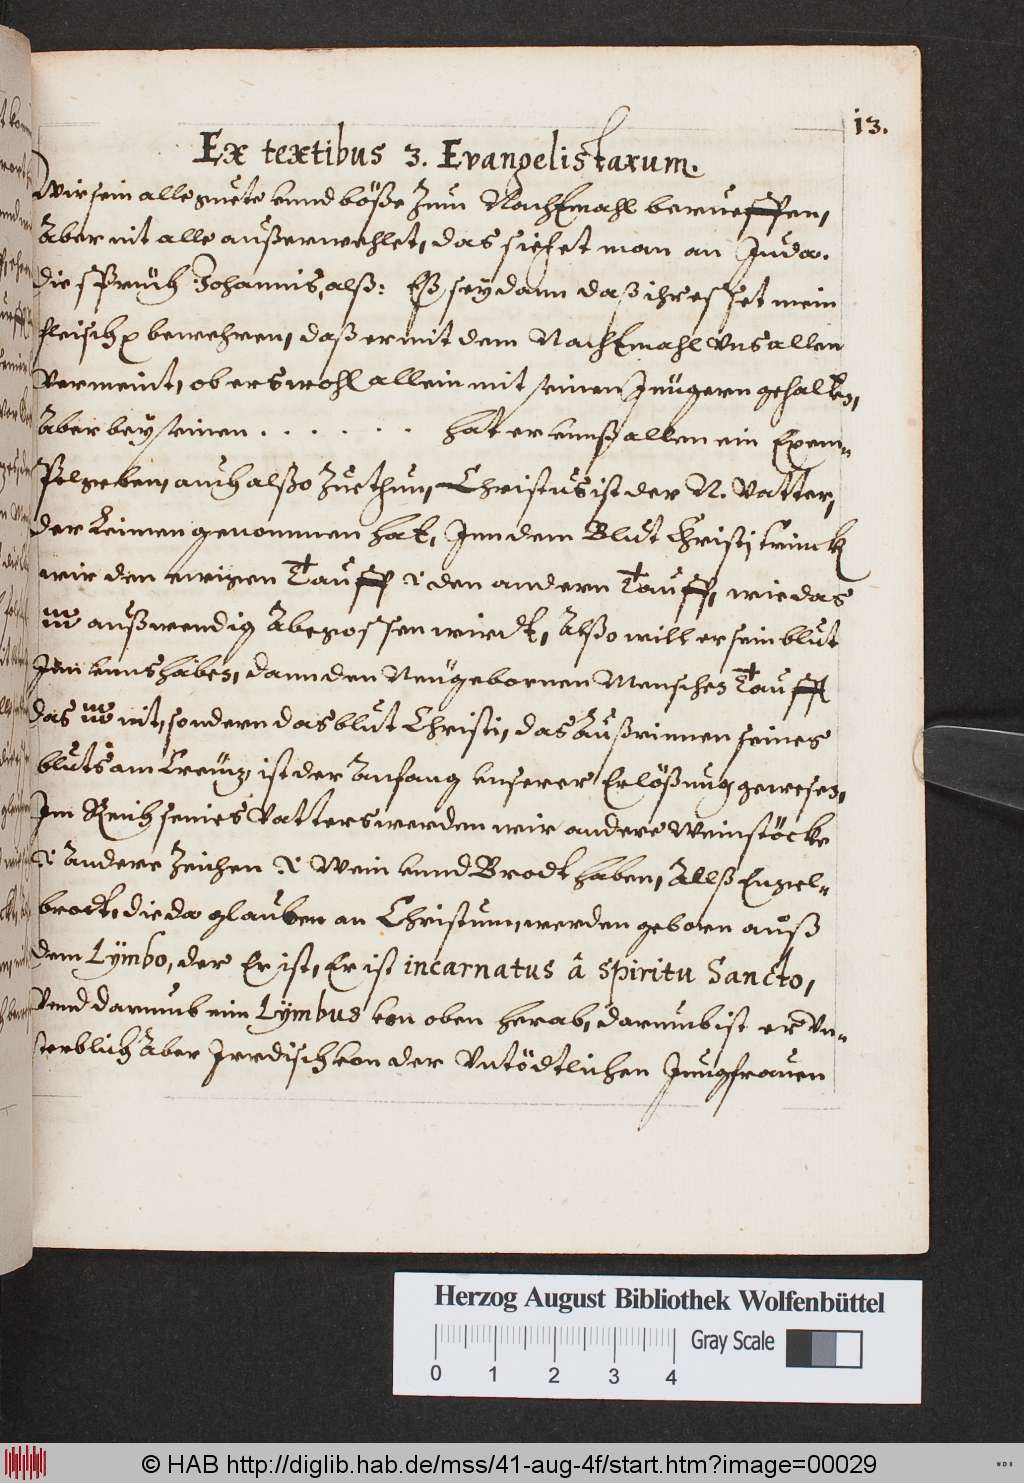 13.
Ex textibus 3. Evangelistarum.
Wir sein alle guete vnnd böße Zum Nachtmahl berueffen,
Aber nit alle außerwehlet, das siehet man an Juda.
die sprüch Johannis, alß: Eß sey dann daß ihr esset mein
fleisch bewehren, daß er mit dem Nachtmahl Vns allen
Vermeint, ob ers wohl allein mit seinen Jüngern gehalten,
Aber bey seinen . . . . . . hat er vnnß allen ein Exem-
pel geben, auch also Zue thun, Christus ist der N. Vatter,
der Leimen genommen hat, Jnn dem Blut Christi trinck
wir den ewigen Tauff den andern Tauff, wie das
außwendig Abegossen wirdt, Alßo will er sein blut
Jnn vnns haben, dann den Neugebornen Menschen Tauff
das nit, sondern das blut Christi, das Außrinnen seines
bluts am Creütz, ist der Anfang vnserer Erlößung gewesen,
Jm Reich seines Vatters werden wir andere Weinstöcke
Andere Zeichen Wein vnnd Brodt haben, Allß Engel-
brodt, die da glauben an Christum, werden geborn auß
dem Lÿmbo, der Er ist, Er ist incarnatus â Spiritu Sancto,
Vnnd darumb ein Lÿmbus von oben herab, darumb ist er Vn-
sterblich Aber Jrrdisch von der Vntödtlichen Jungfrauen
Herzog August Bibliothek Wolfenbüttel
Gray Scale
0 1 2 3 4
© HAB http://diglib.hab.de/mss/41-aug-4f/start.htm?image=00029